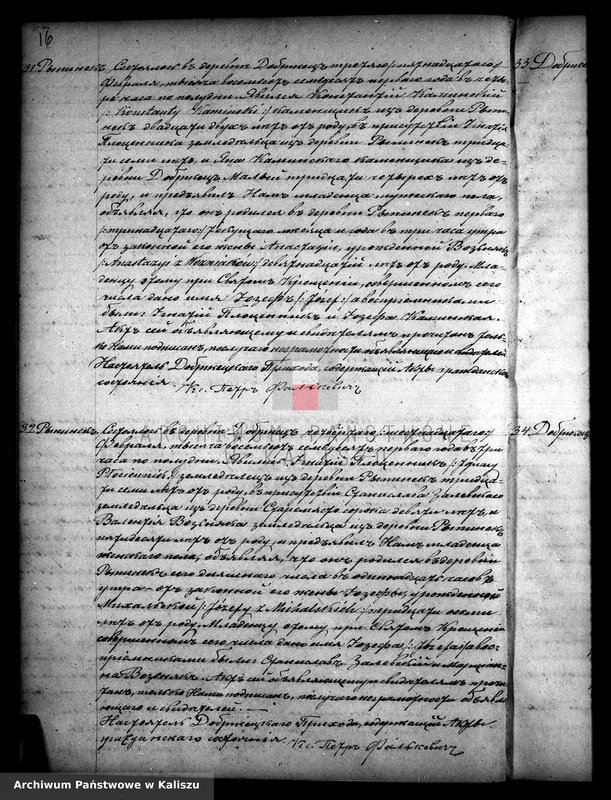 16
31. Рыпинекъ, Состоялось въ деревни Добржецъ третяго /: пятнадцатаго
Февраля, тысяча восемьсотъ семдесятъ перваго года въ четы-
ре часа по полудни. Явился Константій Каминскій
/: Konstanty Kamiński :/ каменщикъ изъ деревни Рыпи-
некъ двадцати двухъ лѣтъ отъ роду, въ присутствіи Игнатія
Плоценника земледѣльца изъ деревни Рыпинекъ тридца-
ти семи лѣтъ, и Яна Каминскаго каменщика изъ де-
ревни Добржецъ Малый тридцати четырехъ лѣтъ отъ
роду, и предъявилъ Намъ младенца мужескаго пола,
объявляя, что онъ родился въ деревни Рыпинекъ перваго
/: тринадцатаго :/ текущаго мѣсяца и года въ три часа утра
отъ законной его жены Анастазіи, урожденной Возьняк
/: Anastazyi z Woźniaków :/ девятнадцатій лѣтъ отъ роду. Мла-
денцу этому при Святомъ Крещеніи, совершонномъ сего
числа дано имя Іозефъ /: Józef :/ а воспріемниками
были Игнатій Плоценникъ и Іозефа Каминская.
Актъ сей объявляющему и свидѣтелямъ прочтонъ, толь-
ко Нами подписанъ, получаго неграмотности объявляющаго и свидѣтелей
Настоятель Добржецкаго Прихода, содержащій Акты гражданскаго
состоянія. Кс. Петръ Фалькевичъ
32. Рыпинекъ, Состоялось въ деревни Добржецъ четвертаго /: шестнадцатаго
Февраля, тысяча восемьсотъ семдесятъ перваго года въ три
часа по полудни. Явился Игнатій Плоценникъ /: Ignacy
Płóciennik :/ земледѣлецъ изъ деревни Рыпинекъ тридца-
ти семи лѣтъ отъ роду, въ присутствіи Станислава Залевскаго
земледѣльца изъ деревни сорока девяти лѣтъ, и
Валентія Возьняка земледѣльца изъ деревни Рыпинекъ
пятидесяти лѣтъ отъ роду, и предъявилъ Намъ младенца
женскаго пола, объявляя, что онъ родился въ деревни
Рыпинекъ его числа въ одинадцать часовъ
утра отъ законной его жены Іозефы, урожденной
Михальской /: Józefy z Michalskich :/ тридцати осьми
лѣтъ отъ роду. Младенцу этому при Святомъ Крещеніи
совершонномъ сего числа дано имя Іозефа /: Józefa :/ а вос-
пріемниками были Станиславъ Залевскій и Маріан-
на Возьнякъ. Актъ сей объявляющему и свидѣтелямъ проч-
танъ, только Нами подписанъ, получаго неграмотности объявля-
ющаго и свидѣтелей.
Настоятель Добржецкаго Прихода, содержащій Акты
гражданскаго состоянія. Кс. Петръ Фалькевичъ
33. Добрже
34. Добржецъ
Archiwum Państwowe w Kaliszu